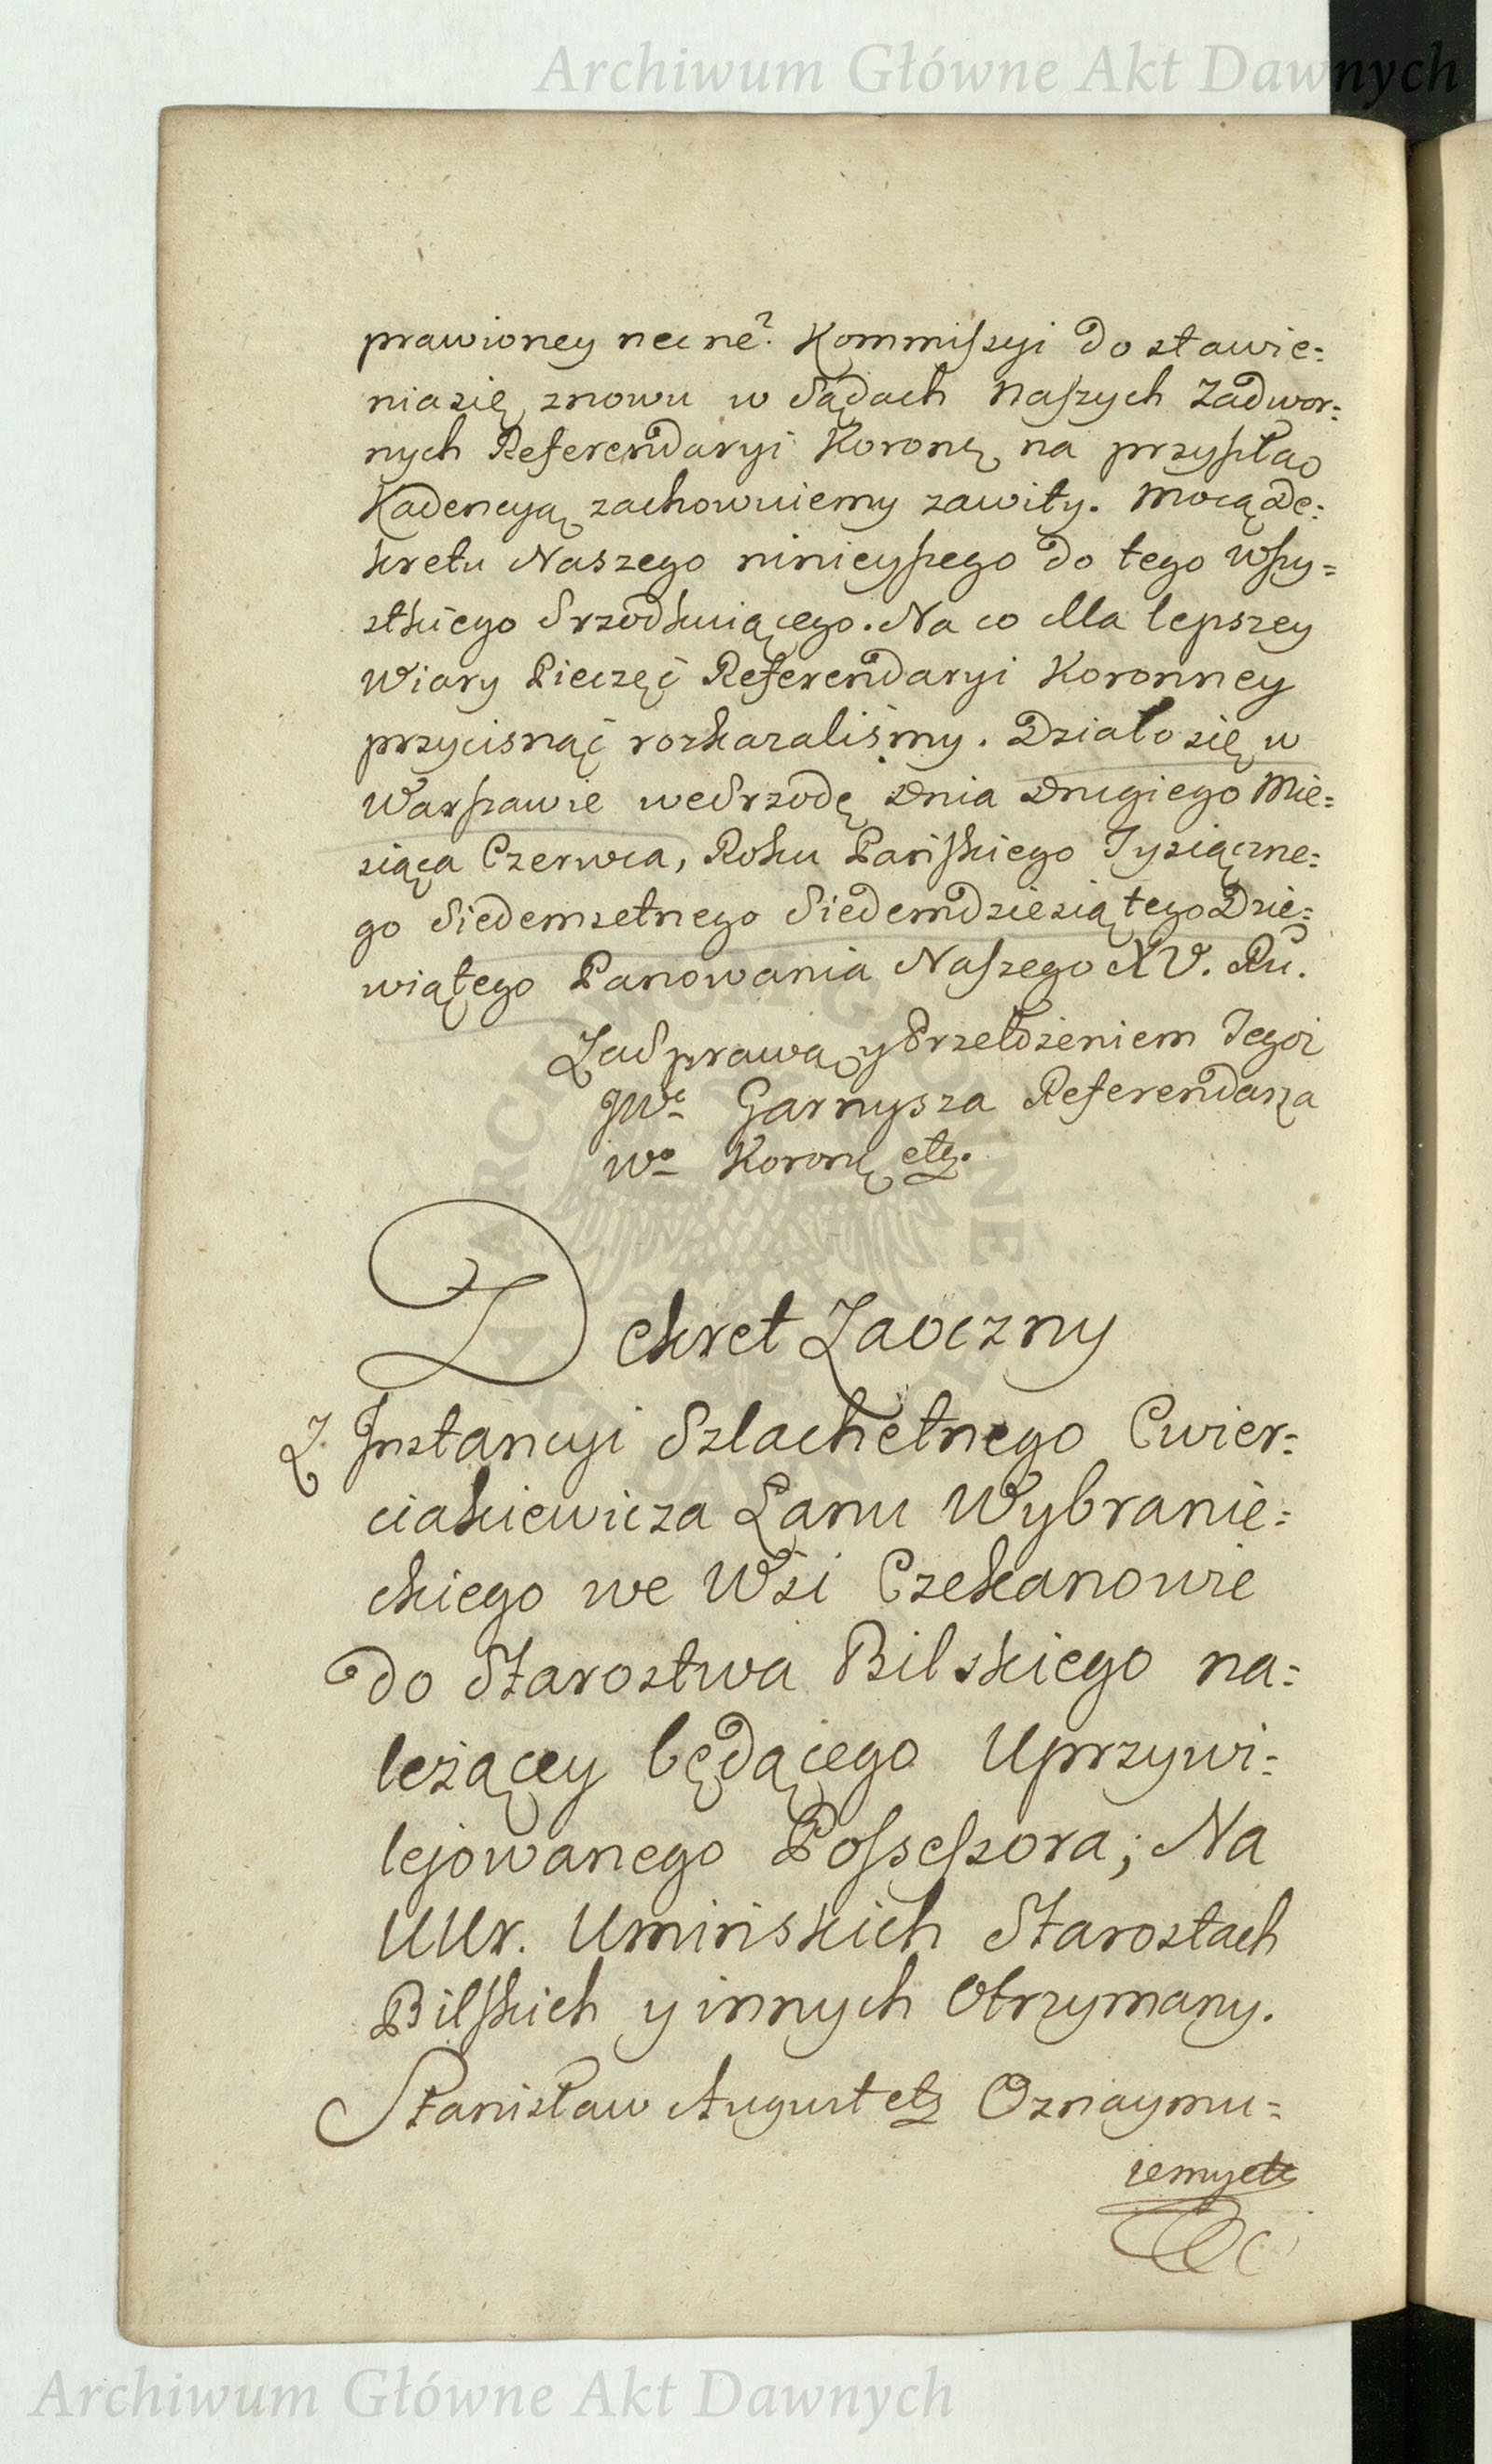 Archiwum Główne Akt Dawnych
prawioney nec ne? Kommiſsyi do stawie=
nia się znowu w Sądach Naſzych Zadwor=
nych Referendaryi Koronę na przyſzłao
Kadencyą zachowuiemy zawity. Mocą De=
kretu Naszego ninieyſzego do tego wſzy=
stkiego Srzodkuiącego. Na co dla lepszey
Wiary Pieczęć Referendaryi Koronney
przycisnąć rozkazaliśmy. Działo się w
Warſzawie we Srzodę Dnia Drugiego Mie=
siąca Czerwca, Roku Pańſkiego Tysiączne=
go Siedemsetnego Siedemdziesiątego Dzie=
wiątego Panowania Naſzego XV. Rū.
Za Sprawą y Przełożeniem Jegoż
JWe Garnysza Referendarza
Wo Koronę etz.
Dekret Zaoczny
Z Instancyi Szlachetnego Cwier=
ciakiewicza Łanu Wybranie=
ckiego we Wsi Czekanowie
do Starostwa Bilskiego na=
leżącey będącego Uprzywi=
lejowanego Poſseſsora; Na
UUr. Umińskich Starostach
Bilſkich y innych Otrzymany.
Stanisław August etz Oznaymu=
iemy etc
Archiwum Główne Akt Dawnych